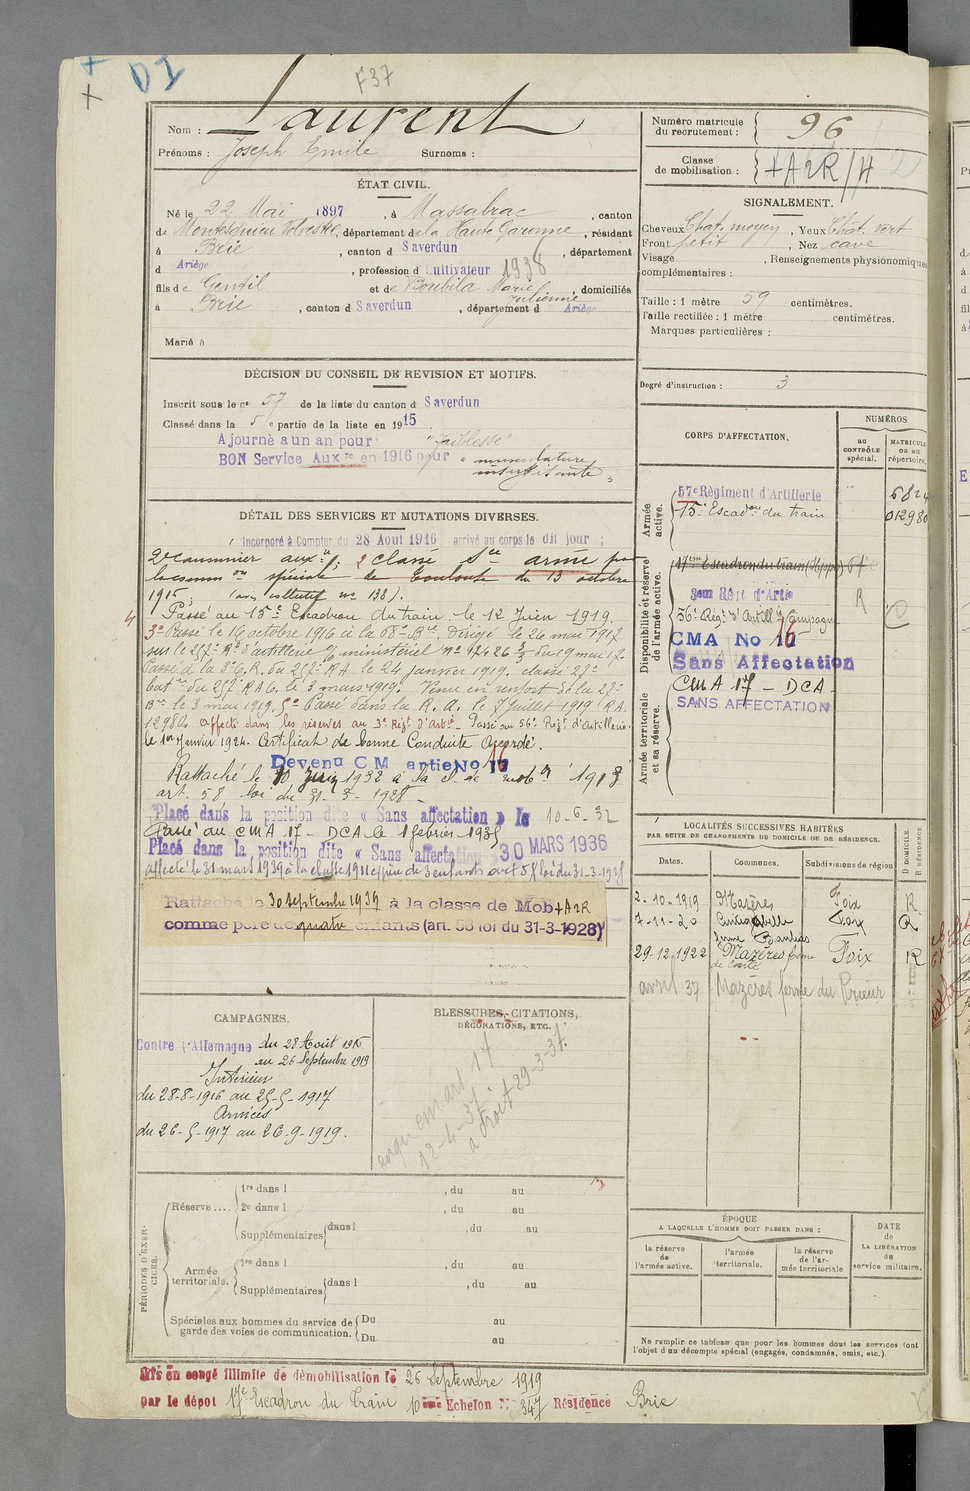 DI
F37
Nom : Laurent
Prénoms : Joseph Emile Surnoms :
Numéro matricule du recrutement : 96
Classe de mobilisation : +A2R/H
ÉTAT CIVIL.
Né le 22 Mai 1897, à Massabrac, canton
de Montesquieu Volvestre, département de la Haute Garonne, résidant
à Brie, canton d Saverdun, département
d Ariège, profession d Cultivateur 1938
fils de Gentil et de Boubila Marie Julienne, domiciliés
à Brie, canton d Saverdun, département d Ariège
Marié à
SIGNALEMENT.
Cheveux Chat. moyen, Yeux Chât. vert
Front petit, Nez cave
Visage , Renseignements physionomiques
complémentaires :
Taille : 1 mètre 59 centimètres.
Taille rectifiée : 1 mètre centimètres.
Marques particulières :
Degré d'instruction : 3
DÉCISION DU CONSEIL DE REVISION ET MOTIFS.
Inscrit sous le no 57 de la liste du canton d Saverdun
Classé dans la 5e partie de la liste en 1915.
Ajourné a un an pour "faiblesse"
BON Service Auxre en 1916 pour "musculature
insuffisante"
DÉTAIL DES SERVICES ET MUTATIONS DIVERSES.
Incorporé à Compter du 28 Aout 1916 arrivé au corps le dit jour ;
2e canonnier auxre 2 classe Sce armé par
la comm on spéciale de Toulouse du 13 octobre
1915, (avis collectif no 138).
4 Passé au 15e Escadron du train le 12 Juin 1919.
3o Passé le 16 octobre 1916 à la 68e Bie. Dirigé le 26 mai 1917
sur le 257e R. d'artillerie ministériel no 92426 du 19 mai 17.
Passé à la 3e C.R. du 257e RA le 24 janvier 1919. classé 27e
batie du 257 RAC. le 3 mars 1919. Venu en renfort à la 27e
Bie le 3 mars 1919. 5o Passé dans la R. A. le 7 juillet 1919
affecté dans les réserves au 3e Régt d'Artie. Passé au 56e Régt d'Artillerie.
le 1er Janvier 1924. Certificat de bonne Conduite Accordé.
Devenu CM artie No 16
Rattaché le 10 juin 1932 à la cl. de mobon 1913
art. 58 loi du 31-3-1928
Placé dans la position dite « Sans affectation » le 10-6-32
Passé au CMA 17 - DCA le 1 février 1935
Placé dans la position dite « Sans affectation » 30 MARS 1936
affecté le 31 mars 1939 à la classe 1911 père de 3 enfants art 58 loi du 31-3-1928
Rattaché le 30 septembre 1939 à la classe de Mob +A2R
comme père de quatre enfants (art. 58 loi du 31-3-1928)
CORPS D'AFFECTATION.
NUMÉROS
au CONTRÔLE spécial.
MATRICULE ou au répertoire.
Armée active.
57e Régiment d'Artillerie
15e Escadon du train 012980
Disponibilité et réserve de l'armée active.
17em Escadron du train (Hippo) 67
3em Régt d'Artie R
56e Régt d'Artillie Campagne
CMA No 16
Sans Affectation
Armée territoriale et sa réserve.
CMA 17 - DCA
SANS AFFECTATION
LOCALITÉS SUCCESSIVES HABITÉES
PAR SUITE DE CHANGEMENTS DE DOMICILE OU DE RÉSIDENCE.
Dates. Communes. Subdivisions de région D DOMICILE. R RÉSIDENCE.
2-10-1919 Mazères Foix R
7-11-20 Cintegabelle Foix R
29-12-1922 Mazères ferme Foix R
avril 37 Mazères ferme du Prieur
CAMPAGNES.
Contre l'Allemagne du 28 Août 1916
au 26 Septembre 1919
Intérieur
du 28-8-1916 au 25-5-1917
Armées
du 26-5-1917 au 26-9-1919.
BLESSURES, CITATIONS,
DÉCORATIONS, ETC.
12-4-37
a droit 29-3-37.
PÉRIODES D'EXERCICES.
Réserve.... 1re dans l , du au
2e dans l , du au
Supplémentaires dans l , du au
Armée territoriale. 1re dans l , du au
Supplémentaires dans l , du au
Spéciales aux hommes du service de garde des voies de communication. Du au
Du au
ÉPOQUE
A LAQUELLE L'HOMME DOIT PASSER DANS :
la réserve de l'armée active.
l'armée territoriale.
la réserve de l'armée territoriale
DATE de LA LIBÉRATION du service militaire.
Ne remplir ce tableau que pour les hommes dont les services font
l'objet d'un décompte spécial (engagés, condamnés, omis, etc.)
Mis en congé illimité de démobilisation le 26 Septembre 1919
par le dépôt 17e Escadron du Train 10ème Echelon No 347 Résidence Brie